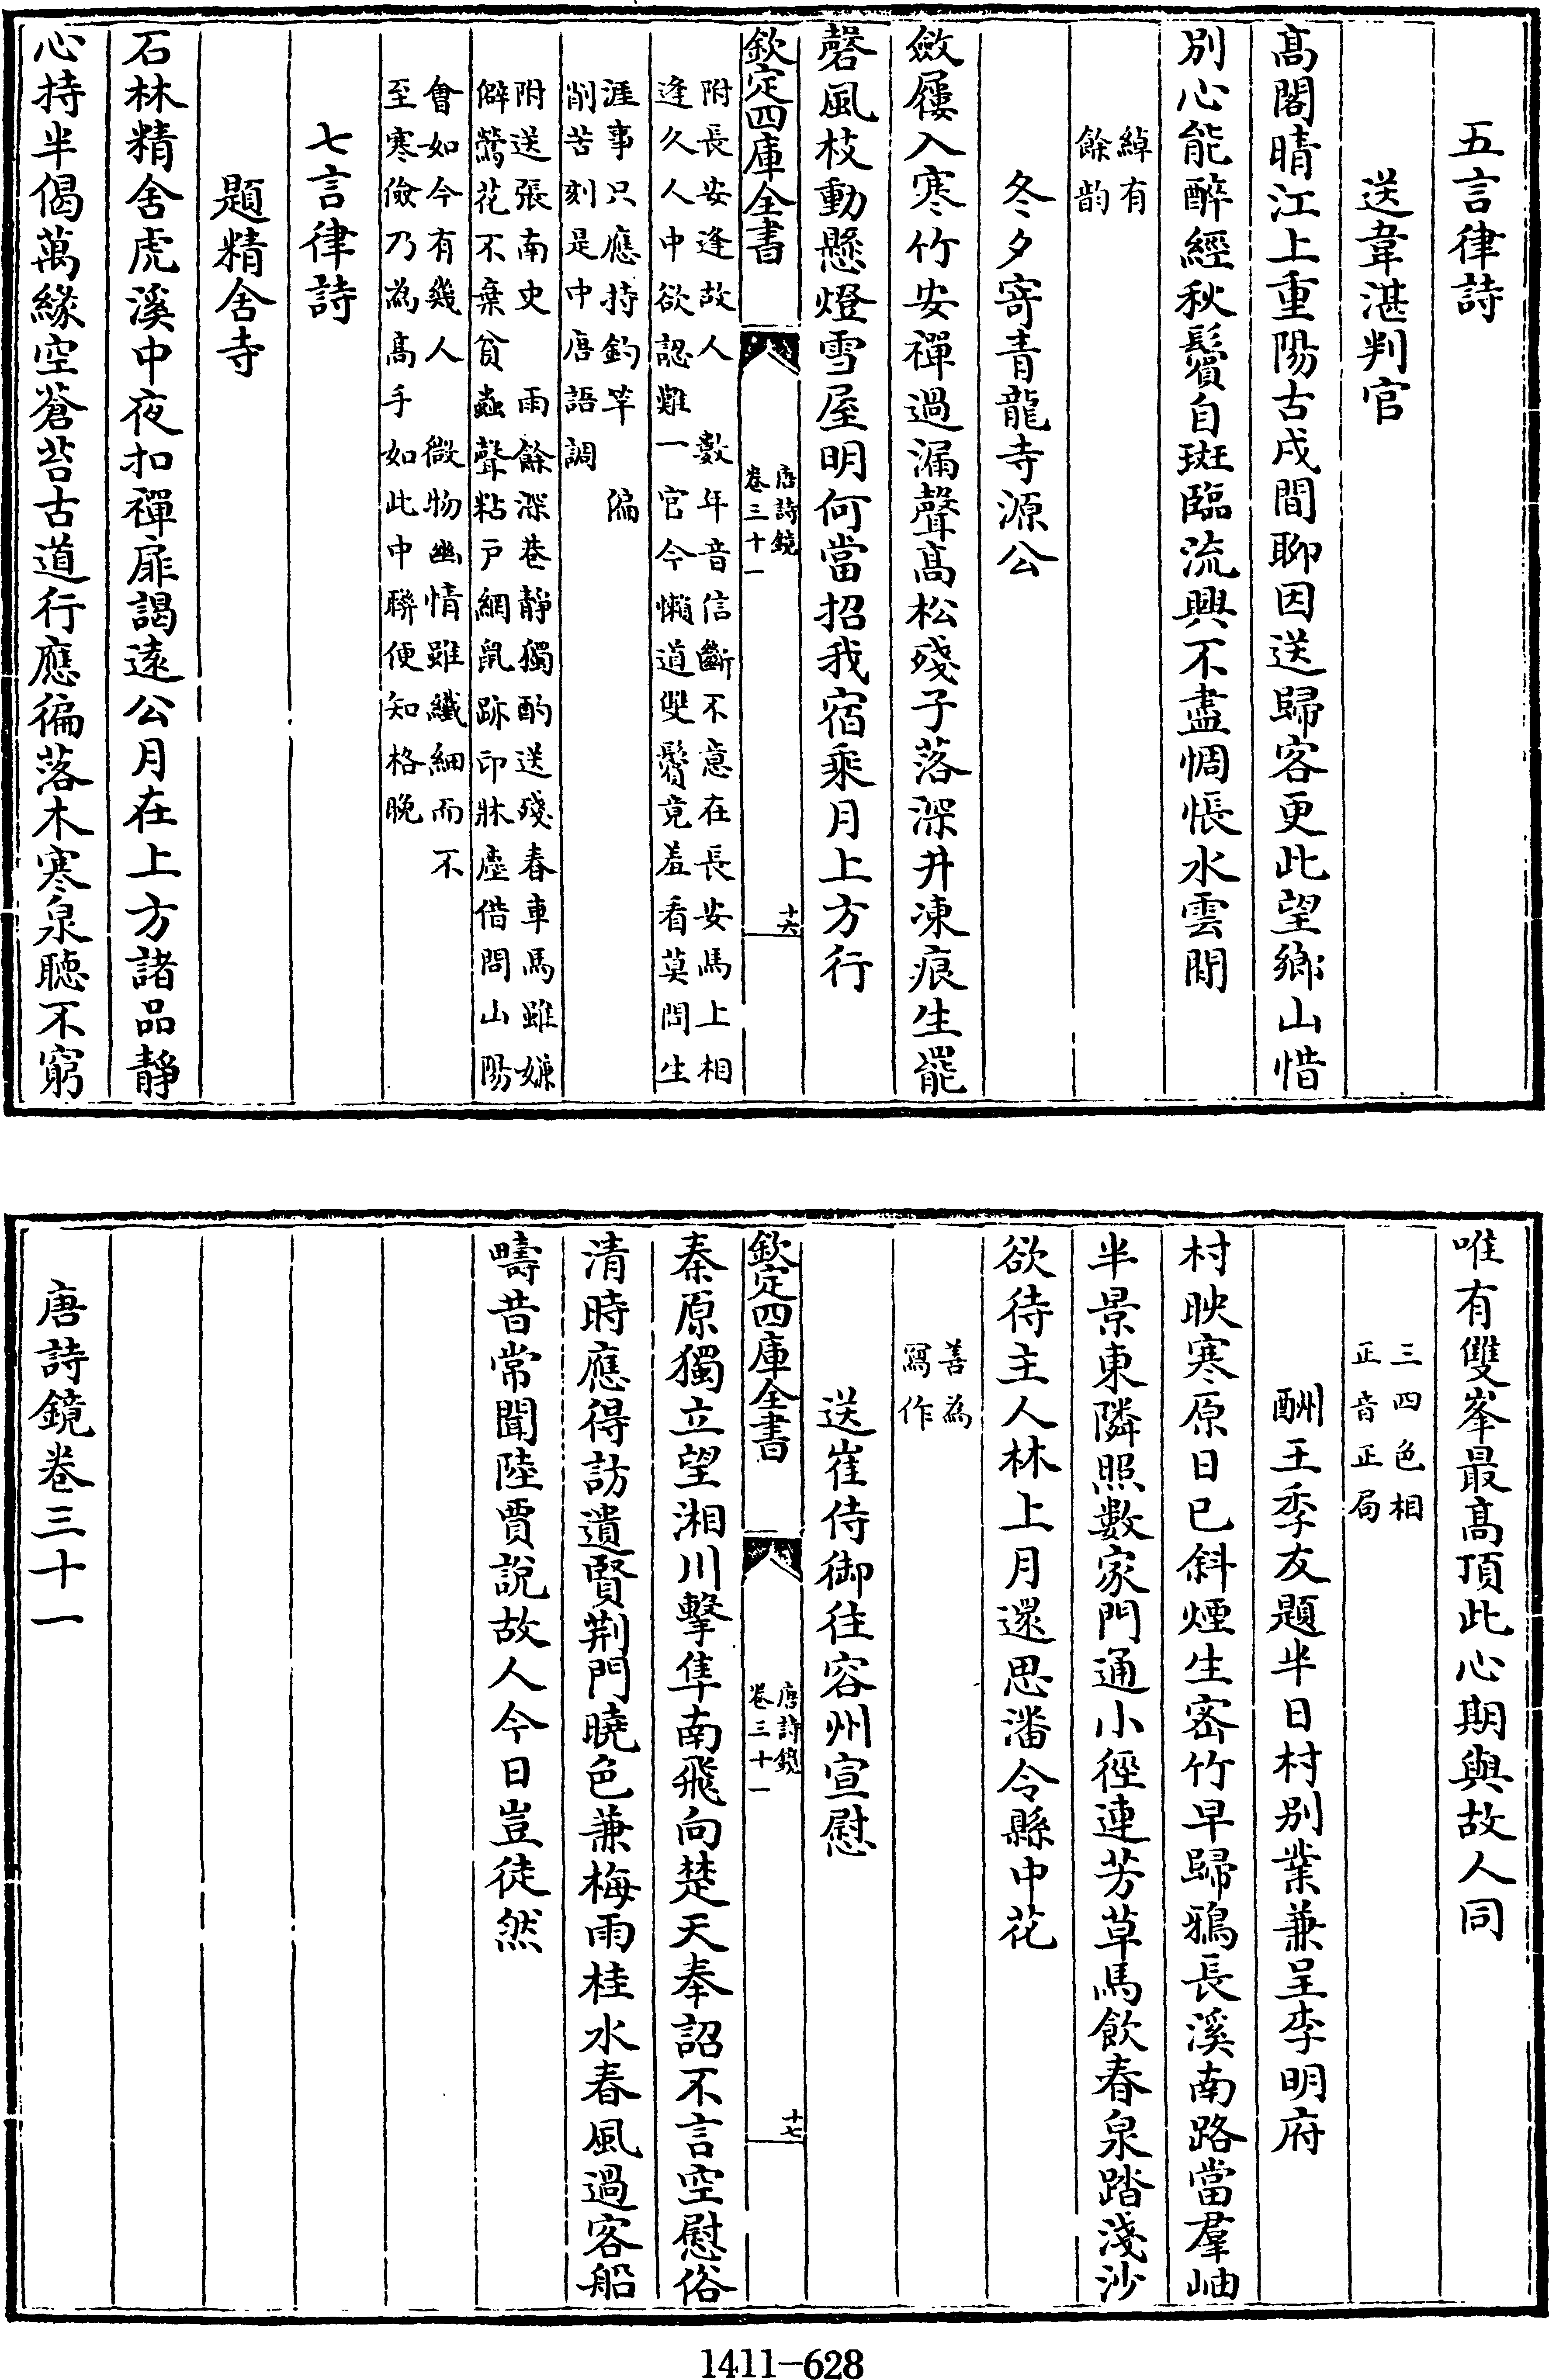 五言律詩
送韋湛判官
髙閣晴江上重陽古戍間聊因送歸客更此望鄉山惜
別心能醉經秋鬢自斑臨流興不盡惆悵水雲間
綽有
餘韵
冬夕寄青龍寺源公
斂屨入寒竹安禪過漏聲髙松殘子落深井凍痕生罷
磬風枝動懸燈雪屋明何當招我宿乘月上方行
欽定四庫全書
唐詩鏡
卷三十一
十六
附長安逢故人　數年音信斷不意在長安馬上相
逢久人中欲認難一官今懶道雙鬢竟羞看莫問生
涯事只應持釣竿　編
削苦刻是中唐語調
附送張南史　雨餘深巷靜獨酌送殘春車馬雖嫌
僻鶯花不棄貧蟲聲粘戸網鼠跡印牀塵借問山陽
會如今有幾人　微物幽情雖纎細而不
至寒儉乃為髙手如此中聯便知格晚
七言律詩
題精舍寺
石林精舍虎溪中夜扣禪扉謁遠公月在上方諸品靜
心持半偈萬緣空蒼苔古道行應徧落木寒泉聽不窮
唯有雙峯最髙頂此心期與故人同
三四色相
正音正局
酬王季友題半日村別業兼呈李明府
村映寒原日已斜煙生密竹早歸鴉長溪南路當羣岫
半景東隣照數家門通小徑連芳草馬飲春泉踏淺沙
欲待主人林上月還思潘令縣中花
善為
寫作
送崔侍御往容州宣慰
秦原獨立望湘川擊隼南飛向楚天奉詔不言空慰俗
欽定四庫全書
唐詩鏡
卷三十一
十七
清時應得訪遺賢荆門曉色兼梅雨桂水春風過客船
疇昔常聞陸賈說故人今日豈徒然
唐詩鏡卷三十一
1411-628